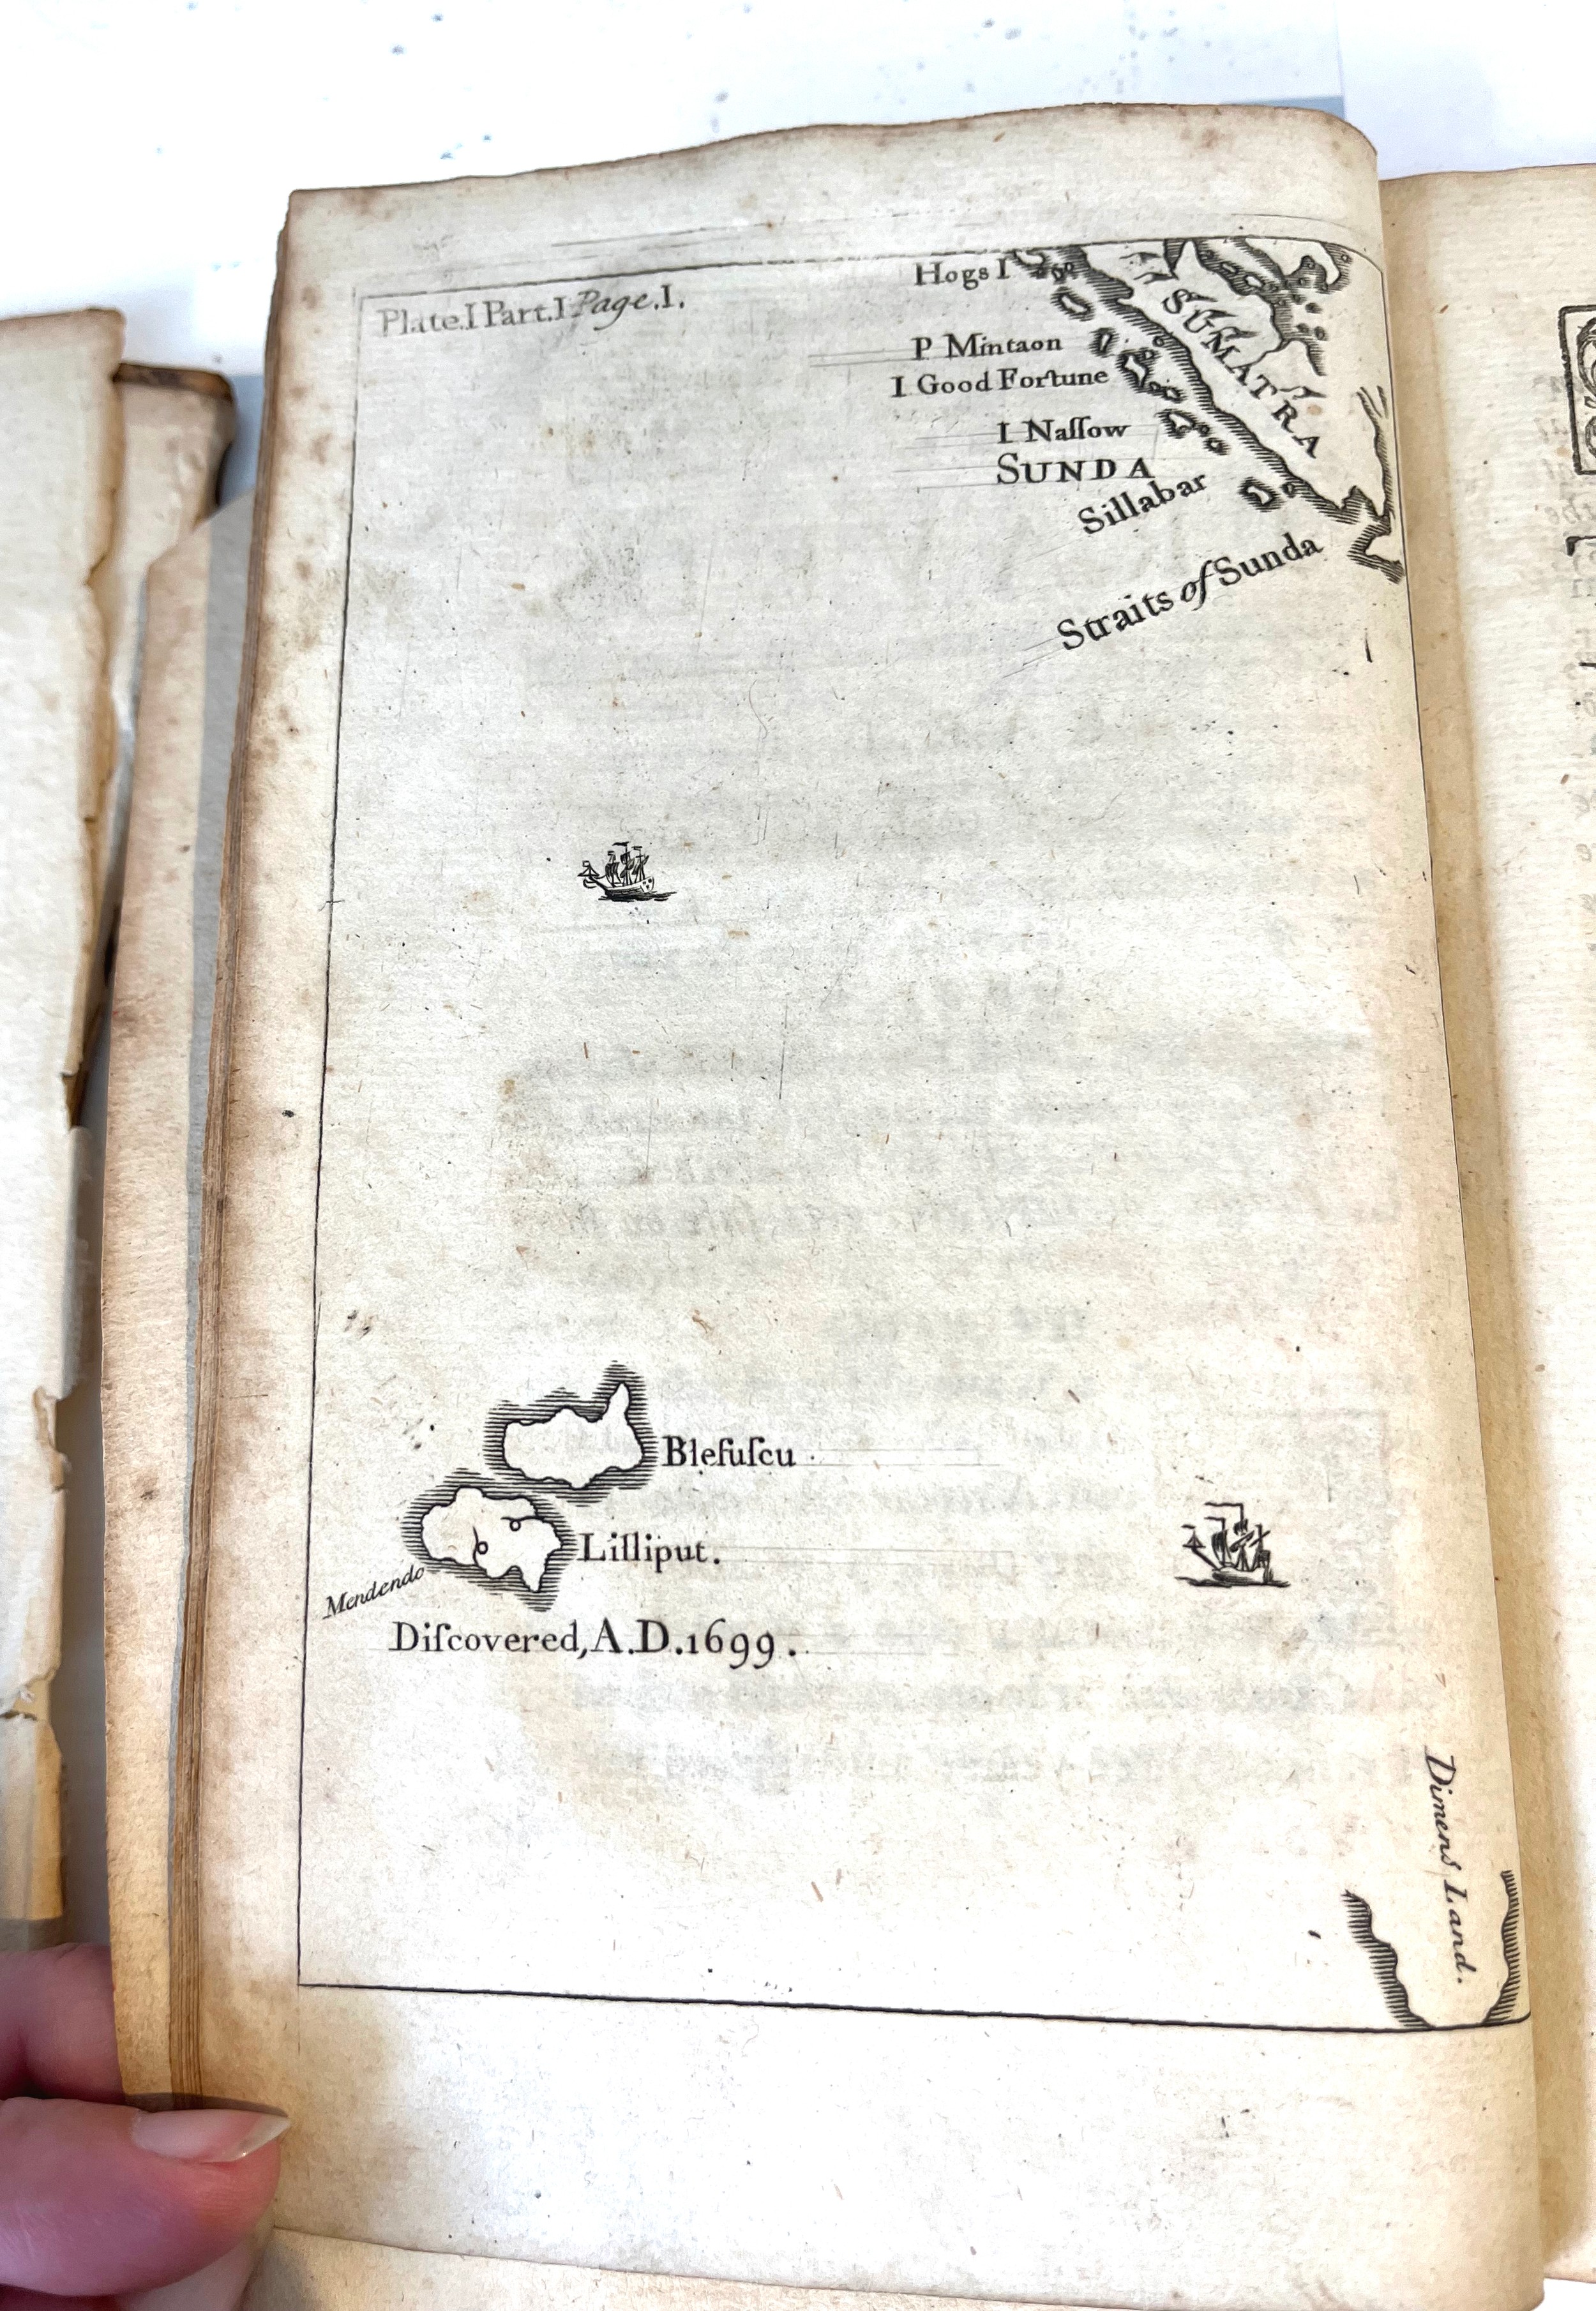 Plate.I Part.I Page.I.
Hogs I
SUMATRA
P Mintaon
I Good Fortune
I Naſſow
SUNDA
Sillabar
Straits of Sunda
Blefuſcu
Lilliput.
Mendendo
Diſcovered, A.D. 1699.
Dimens Land.